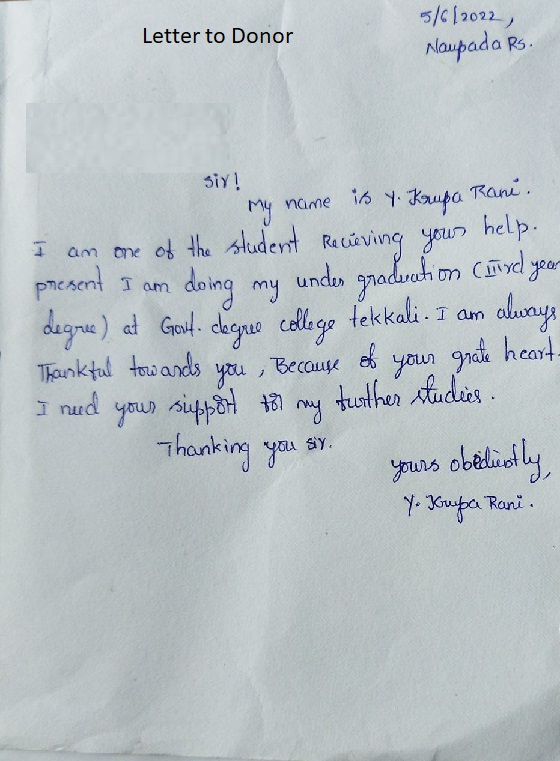 Letter to Donor
5/6/2022,
Naupada Rs.
Sir!
My name is Y. Krupa Rani.
I am one of the student Recieving your help.
present I am doing my under graduation (IIIrd year
degree) at Govt. degree college tekkali. I am always
Thankful towards you, Because of your grate heart.
I need your support for my further studies.
Thanking you sir.
yours obediently,
Y. Krupa Rani.